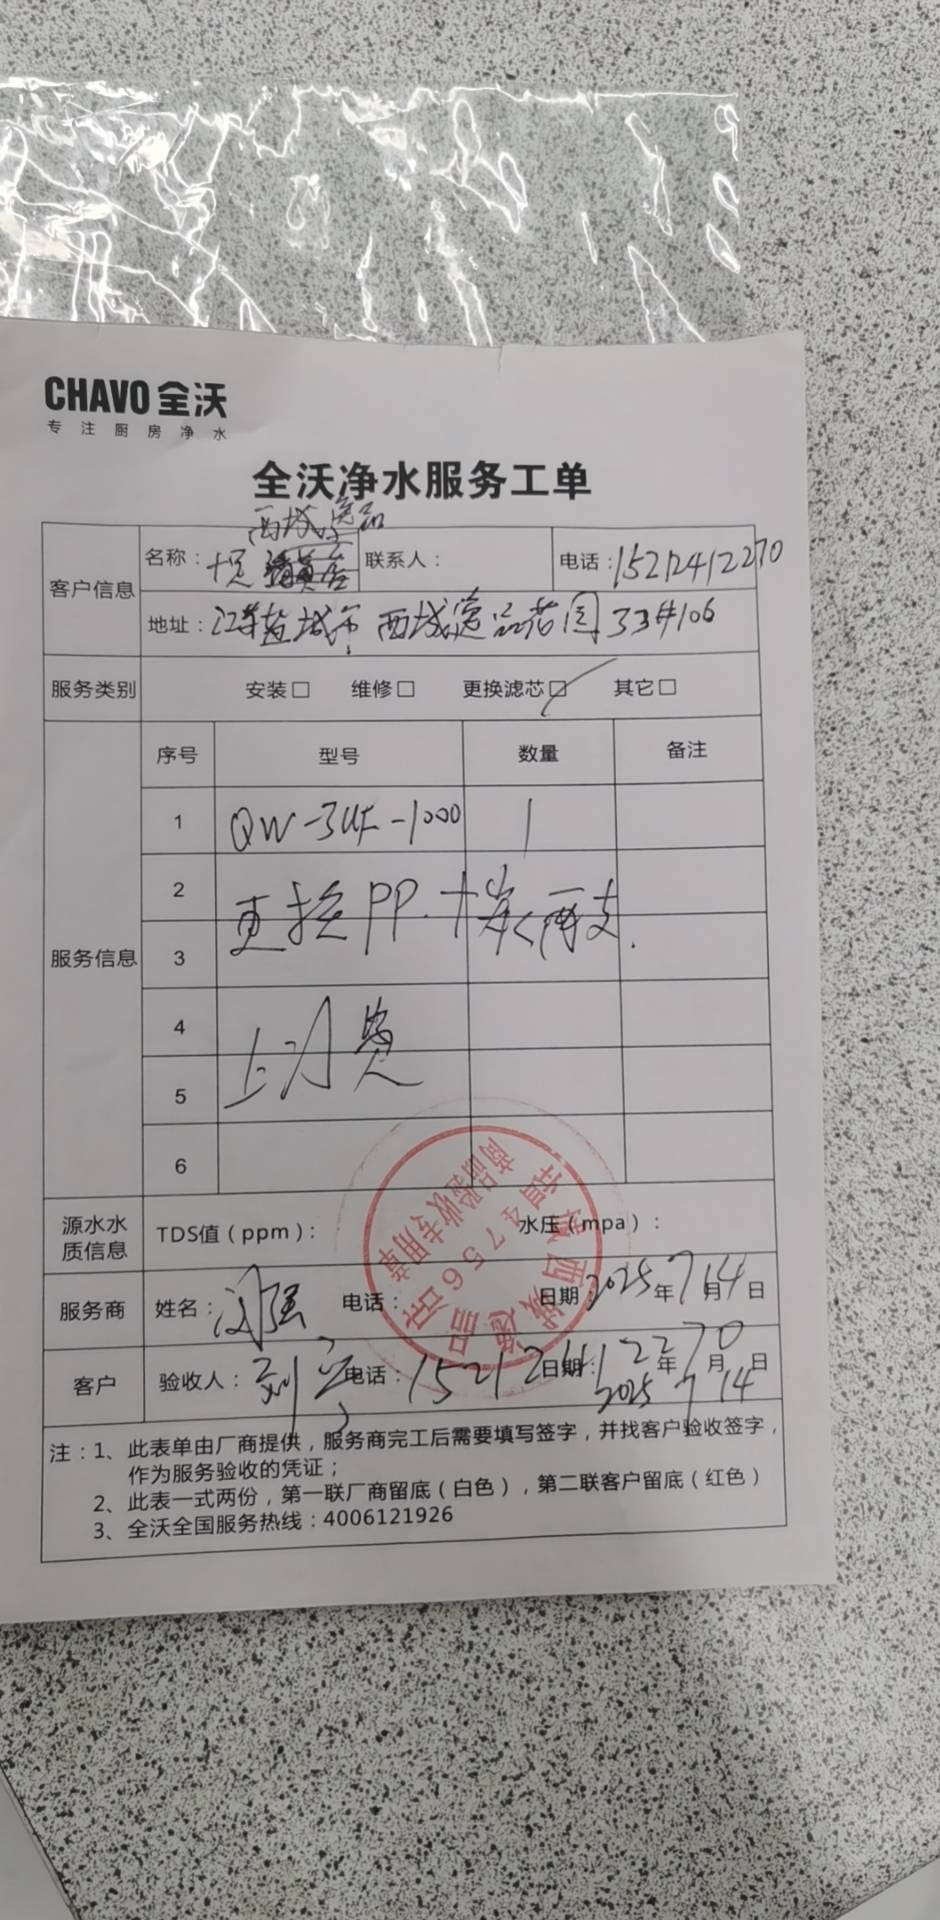 CHAVO 全沃
专注厨房净水
全沃净水服务工单
西城逸品
客户信息 名称： 联系人： 电话：15212412270
地址：江苏盐城市 西城逸品花园33#106
服务类别 安装□ 维修□ 更换滤芯☑ 其它□
服务信息 序号 型号 数量 备注
1 QW-3UF-1000 1
2
更换PP.十炭 两支.
3
4
上门费
5
6
源水水质信息 TDS值（ppm）： 水压（mpa）：
服务商 姓名： 电话： 日期：2025年7月14日
客户 验收人：刘 电话：15212412270 日期：2025年7月14日
商品验收专用章
注：1、此表单由厂商提供，服务商完工后需要填写签字，并找客户验收签字，
作为服务验收的凭证；
2、此表一式两份，第一联厂商留底（白色），第二联客户留底（红色）
3、全沃全国服务热线：4006121926